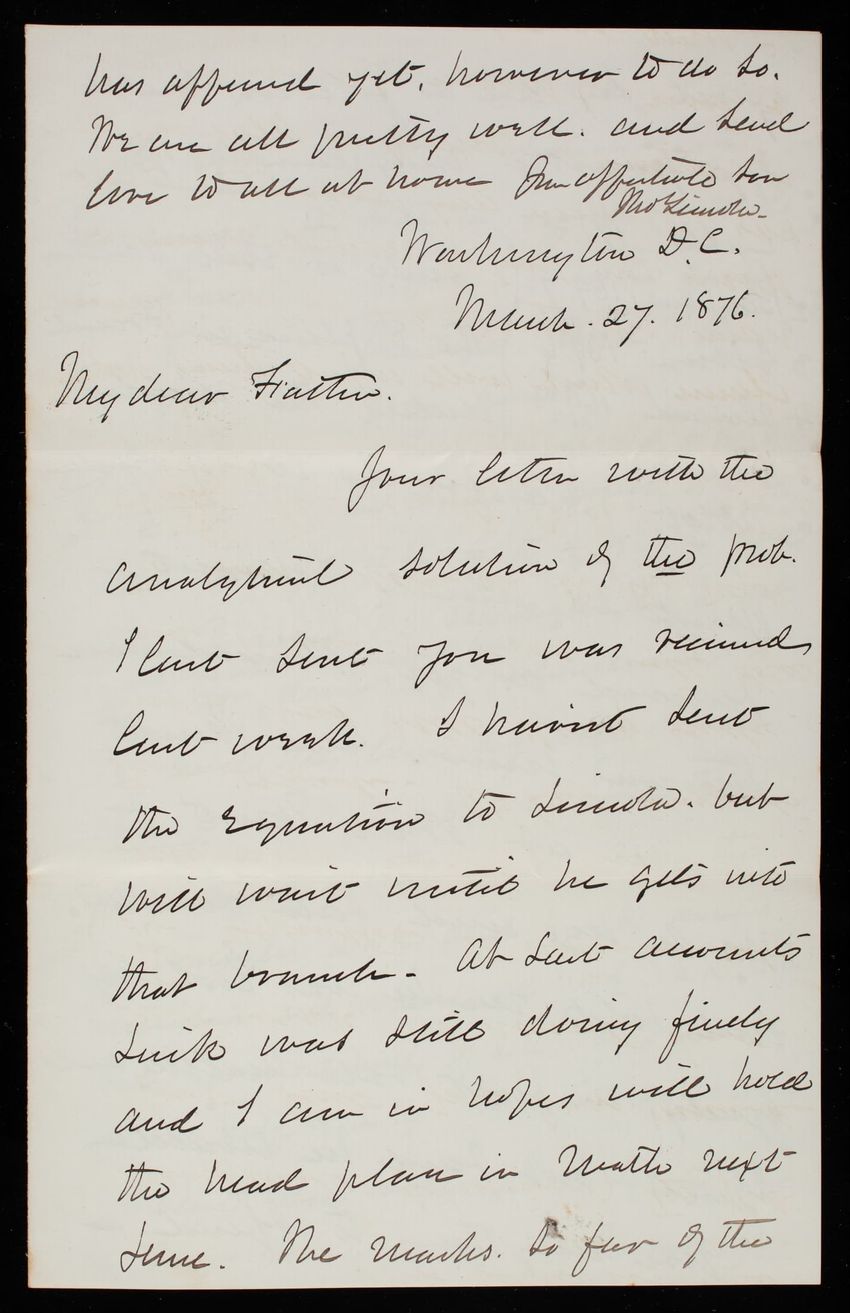 has offered yet, however to do so.
We are all pretty well. and send
love to all at home Your affectionate son
Thos Lincoln
Washington D.C.
March. 27. 1876.
My dear Father.
Your letter with the
analytical solution of the prob.
I last sent you was received
last week. I haven't sent
the Equation to Lincoln. but
will wait until he gets into
that branch. At last accounts
Linck was still doing finely
and I am in hopes will hold
the head place in Math next
June. The marks. so far of the